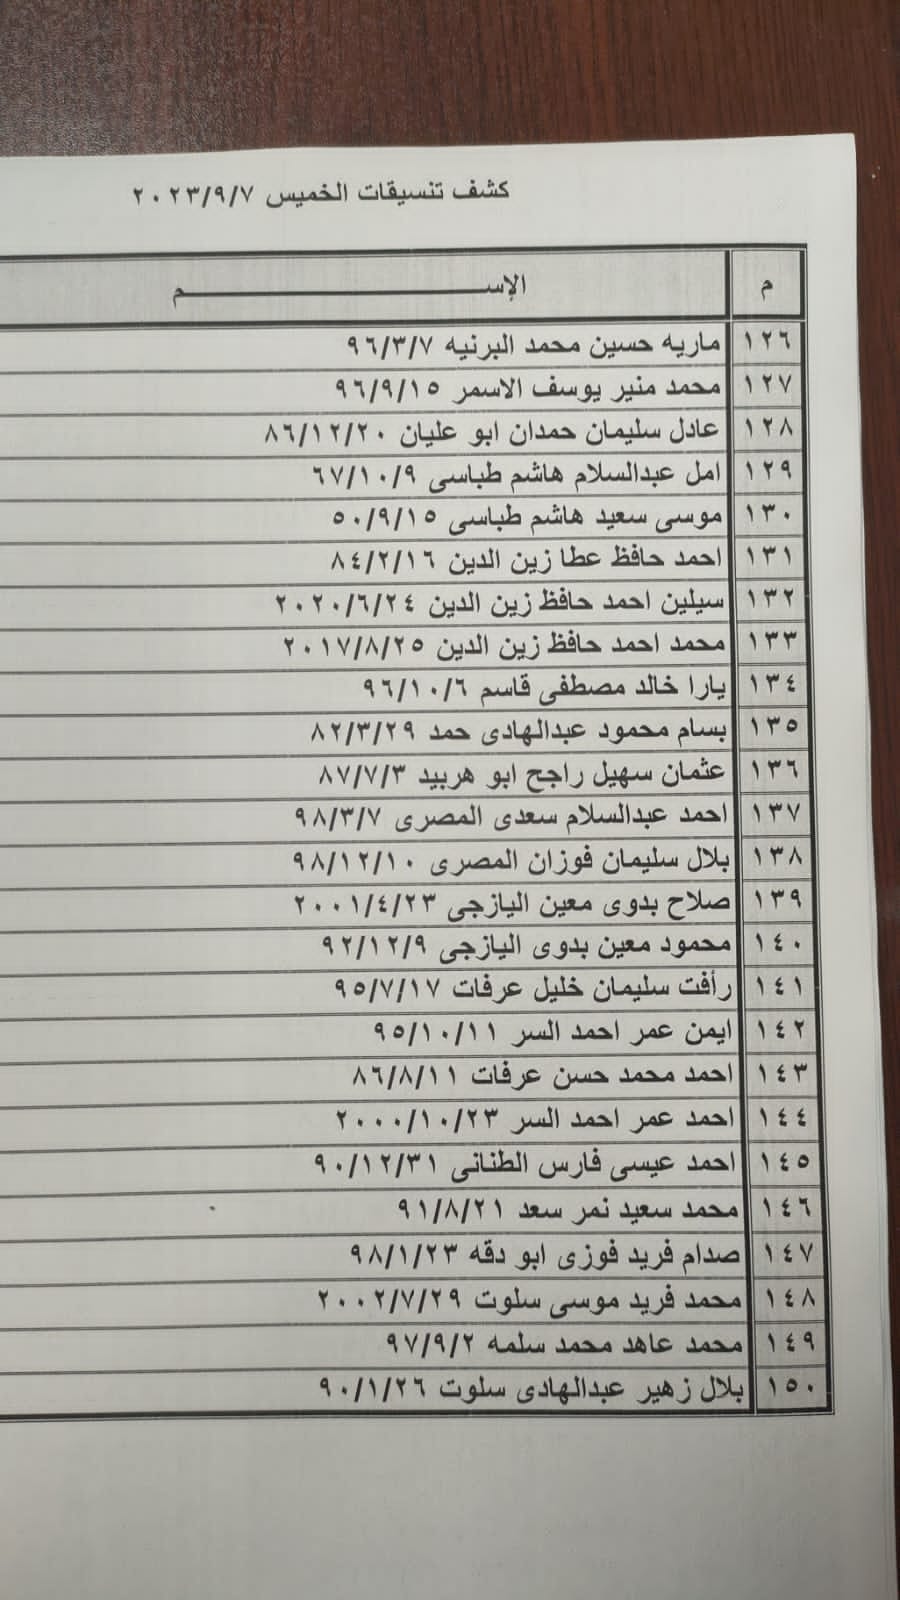 كشف تنسيقات الخميس ٢٠٢٣/٩/٧
م الإســـــــــــم
١٢٦ ماريه حسين محمد البرنيه ٩٦/٣/٧
١٢٧ محمد منير يوسف الاسمر ٩٦/٩/١٥
١٢٨ عادل سليمان حمدان ابو عليان ٨٦/١٢/٢٠
١٢٩ امل عبدالسلام هاشم طباسى ٦٧/١٠/٩
١٣٠ موسى سعيد هاشم طباسى ٥٠/٩/١٥
١٣١ احمد حافظ عطا زين الدين ٨٤/٢/١٦
١٣٢ سيلين احمد حافظ زين الدين ٢٠٢٠/٦/٢٤
١٣٣ محمد احمد حافظ زين الدين ٢٠١٧/٨/٢٥
١٣٤ يارا خالد مصطفى قاسم ٩٦/١٠/٦
١٣٥ بسام محمود عبدالهادى حمد ٨٢/٣/٢٩
١٣٦ عثمان سهيل راجح ابو هربيد ٨٧/٧/٣
١٣٧ احمد عبدالسلام سعدى المصرى ٩٨/٣/٧
١٣٨ بلال سليمان فوزان المصرى ٩٨/١٢/١٠
١٣٩ صلاح بدوى معين اليازجى ٢٠٠١/٤/٢٣
١٤٠ محمود معين بدوى اليازجى ٩٢/١٢/٩
١٤١ رأفت سليمان خليل عرفات ٩٥/٧/١٧
١٤٢ ايمن عمر احمد السر ٩٥/١٠/١١
١٤٣ احمد محمد حسن عرفات ٨٦/٨/١١
١٤٤ احمد عمر احمد السر ٢٠٠٠/١٠/٢٣
١٤٥ احمد عيسى فارس الطنانى ٩٠/١٢/٣١
١٤٦ محمد سعيد نمر سعد ٩١/٨/٢١
١٤٧ صدام فريد فوزى ابو دقه ٩٨/١/٢٣
١٤٨ محمد فريد موسى سلوت ٢٠٠٢/٧/٢٩
١٤٩ محمد عاهد محمد سلمه ٩٧/٩/٢
١٥٠ بلال زهير عبدالهادى سلوت ٩٠/١/٢٦